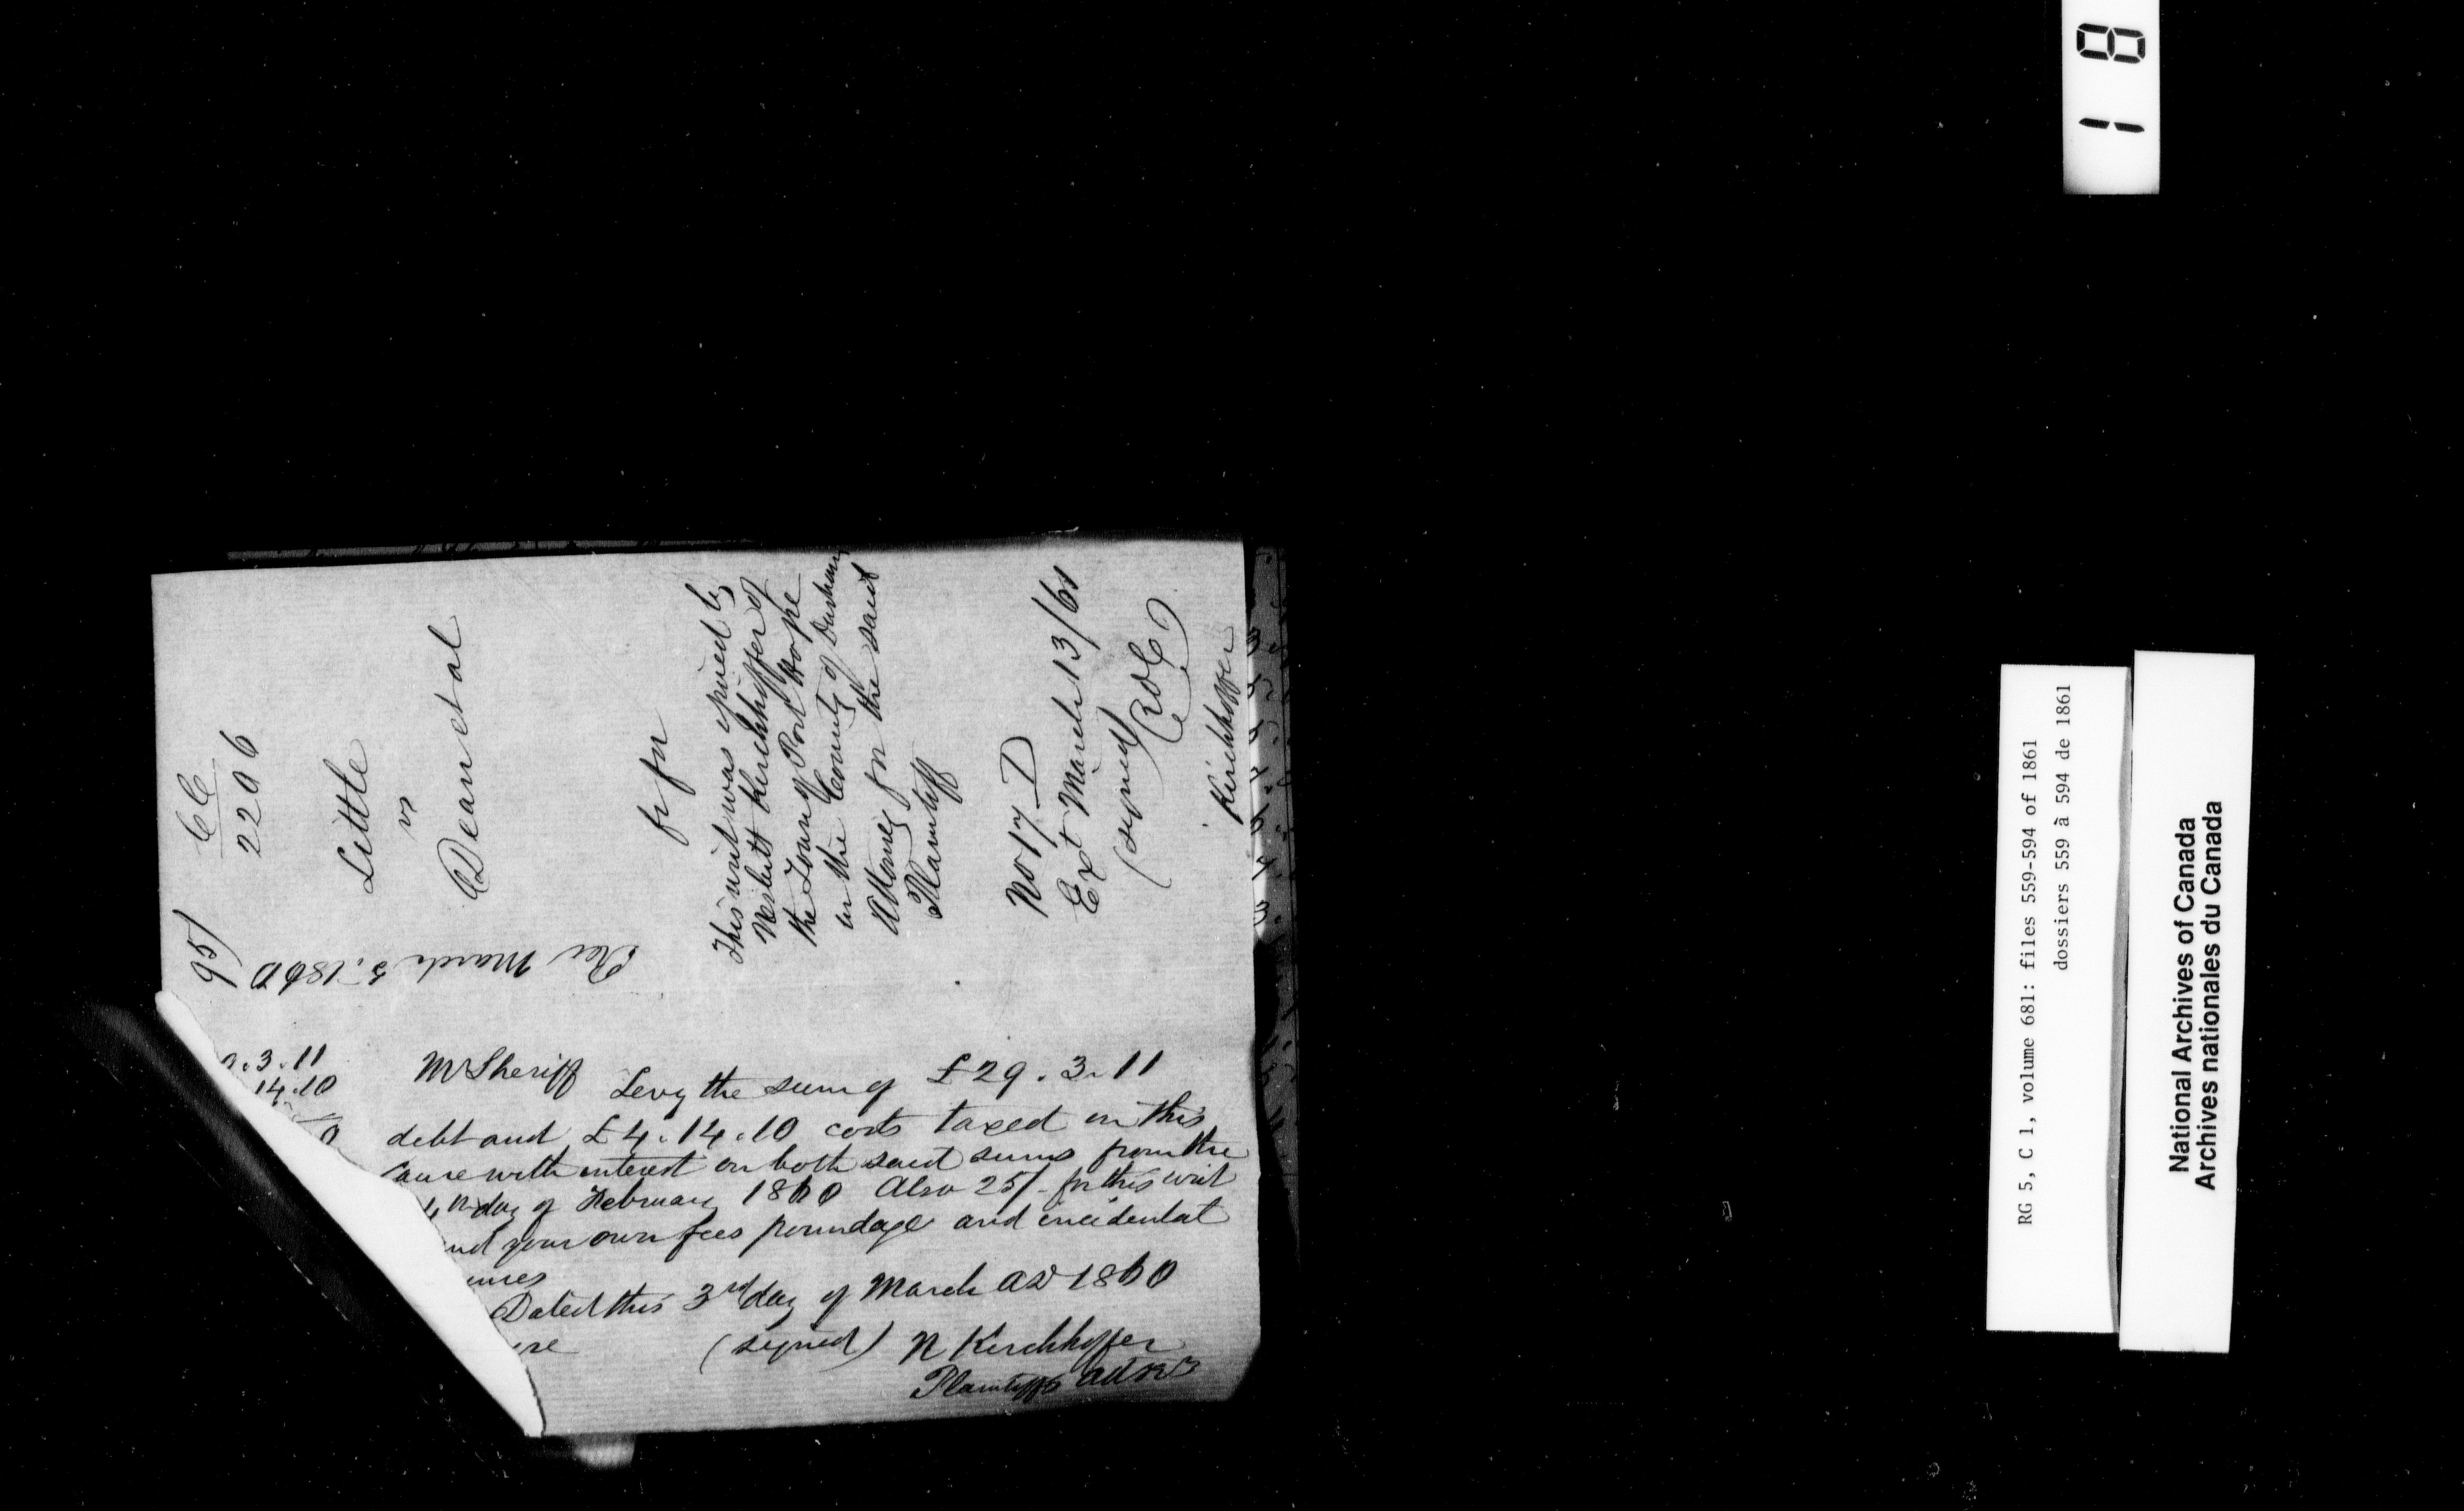 95/
CC
2206
Little
vs
Dean et al
Rec March 5. 1860
fi fa
This writ was issued by
Nesbitt Kirchhoffer of
the Town of Port Hope
in the County of Durham
Attorney for the said
Plaintiff
No 17 D
Ext March 13/61
(signed)
Kirchhoffer
.3.11
14.10
0
Mr Sheriff Levy the sum of £29.3.11
debt and £4.14.10 costs taxed in this
cause with interest on both said sums from the
day of February 1860 Also 25/- for this writ
and your own fees poundage and incidental
Dated this 3rd day of March AD 1860
(signed) N Kirchhoffer
Plaintiffs Atty
18
RG 5, C 1, volume 681: files 559-594 of 1861
dossiers 559 à 594 de 1861
National Archives of Canada
Archives nationales du Canada